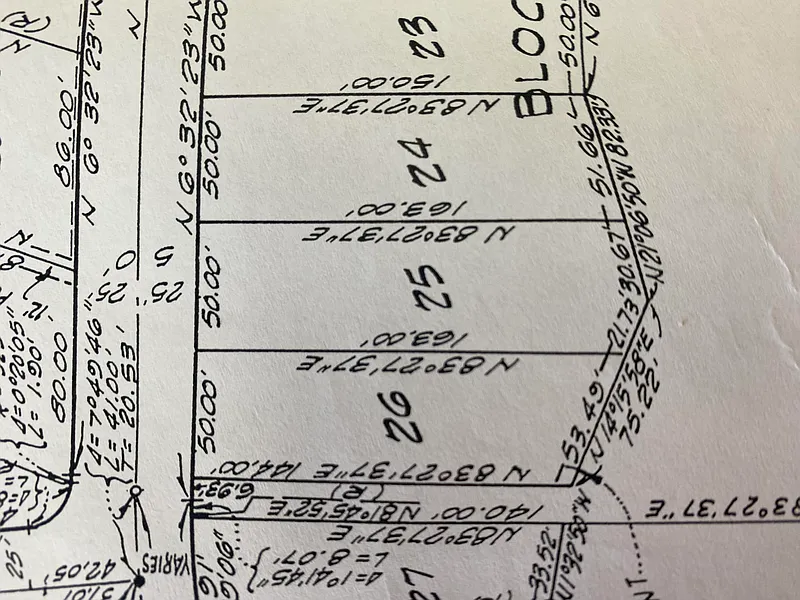 (R)
N
N 6° 32' 23" W
86.00'
N
N 6° 32' 23" W
50.00'
23
BLOC
50.00'
N 6
150.00'
N 83°27'37"E
50.00'
24
51.66'
N21°06'50"W 82.33'
163.00'
N 83°27'37"E
50.00'
25
30.67'
21.73'
5 0'
25' 25'
163.00'
N 83°27'37"E
50.00'
26
53.49'
N14°15'58"E
75.22'
N 83°27'37"E 144.00'
80.00
Δ=0°20'05"
L= 1.90'
Δ=7°49'46"
L= 41.00'
T= 20.53'
6.93'
(R)
140.00' N81°45'52"E
N83°27'37"E
83°27'37"E
VARIES
Δ=1°41'45"
L= 8.07'
27
33.52'
N1°32'50"W
25'
42.05'
51.01